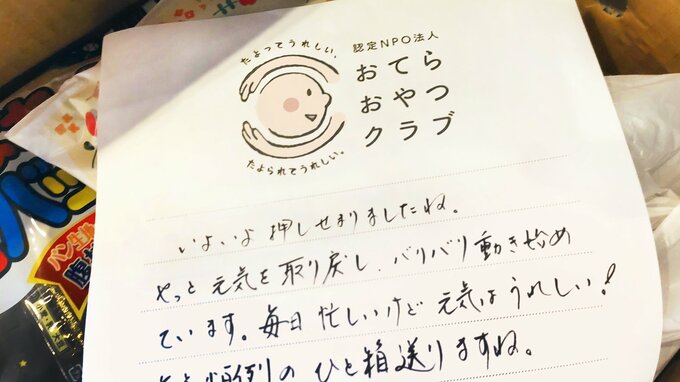 たよってうれしい。
たよられてうれしい。
認定NPO法人
おてら
おやつ
クラブ
いよいよ押しせまりましたね。
やっと元気を取り戻し、バリバリ動き始め
ています。毎日忙しいけど元気はうれしい！
のひと箱送りますね。
パン生地